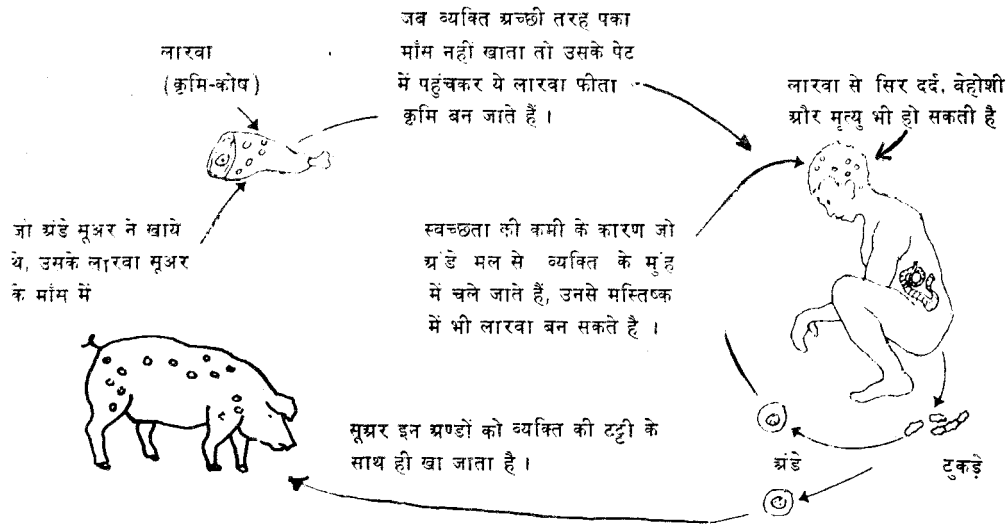 जब व्यक्ति अच्छी तरह पका
माँस नहीं खाता तो उसके पेट
में पहुंचकर ये लारवा फीता
कृमि बन जाते हैं ।
लारवा
(कृमि-कोष)
लारवा से सिर दर्द, बेहोशी
और मृत्यु भी हो सकती है
जो अंडे सूअर ने खाये
थे, उसके लारवा सूअर
के माँस में
स्वच्छता की कमी के कारण जो
अंडे मल से व्यक्ति के मुंह
में चले जाते हैं, उनसे मस्तिष्क
में भी लारवा बन सकते है ।
सूअर इन अण्डों को व्यक्ति की टट्टी के
साथ ही खा जाता है ।
अंडे
टुकड़े